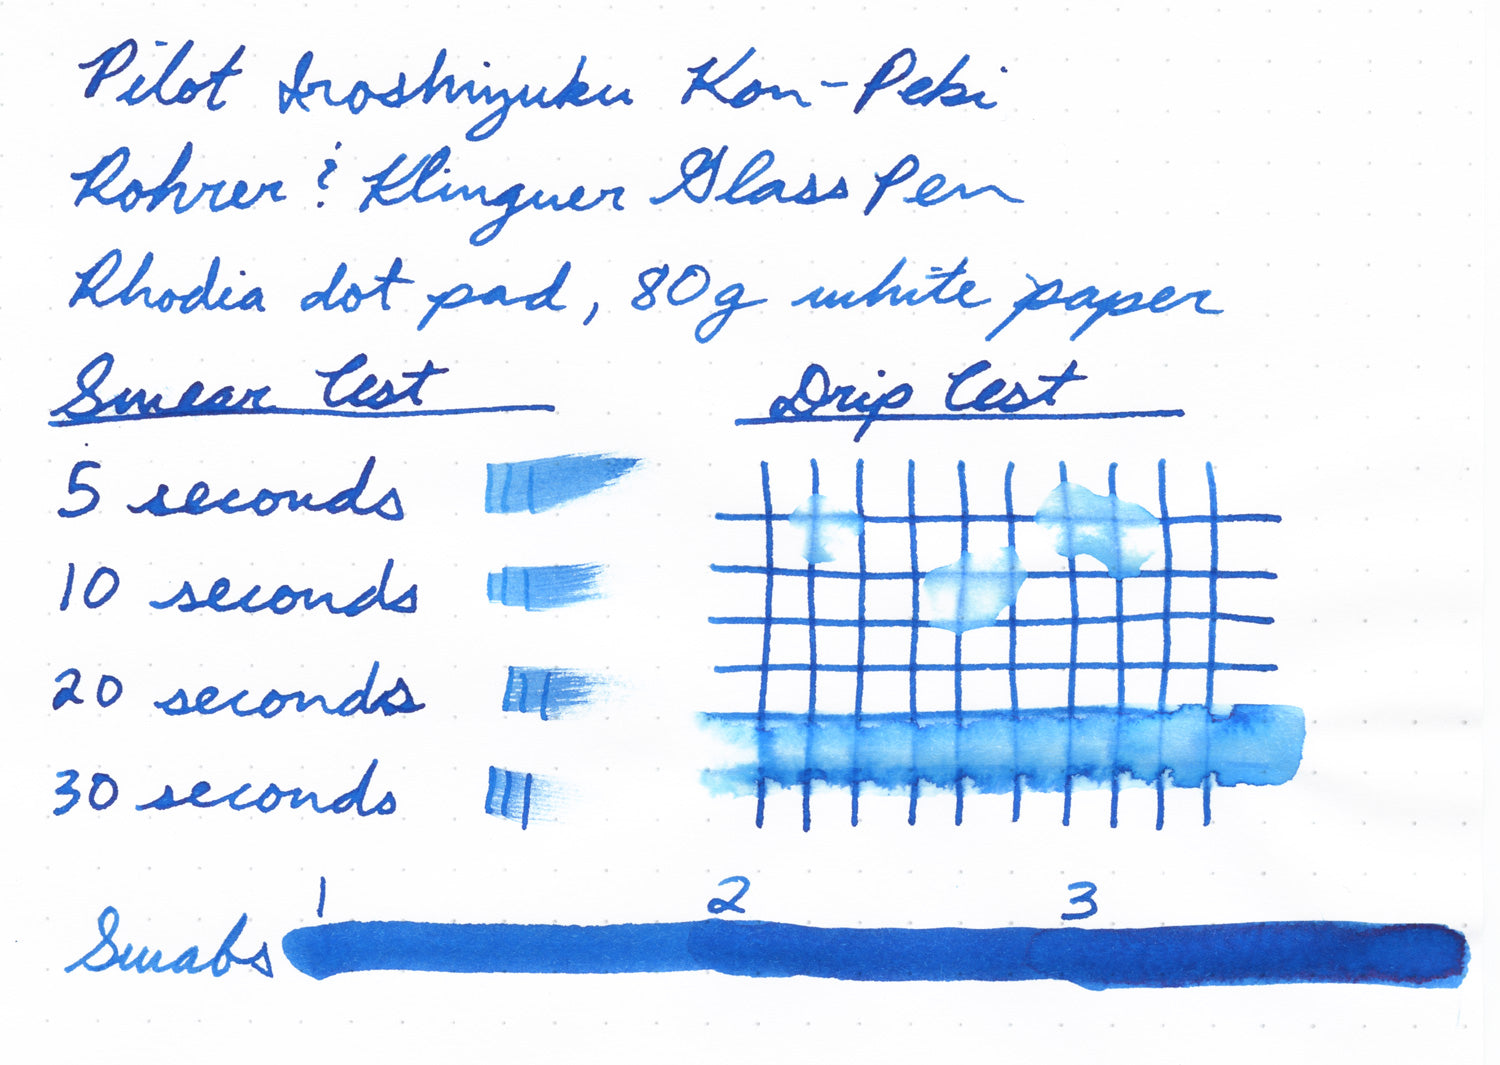 Pilot Iroshizuku Kon-Peki
Rohrer & Klinguer Glass Pen
Rhodia dot pad, 80g white paper
Smear Test
5 seconds
10 seconds
20 seconds
30 seconds
Drip Test
1 2 3
Swabs